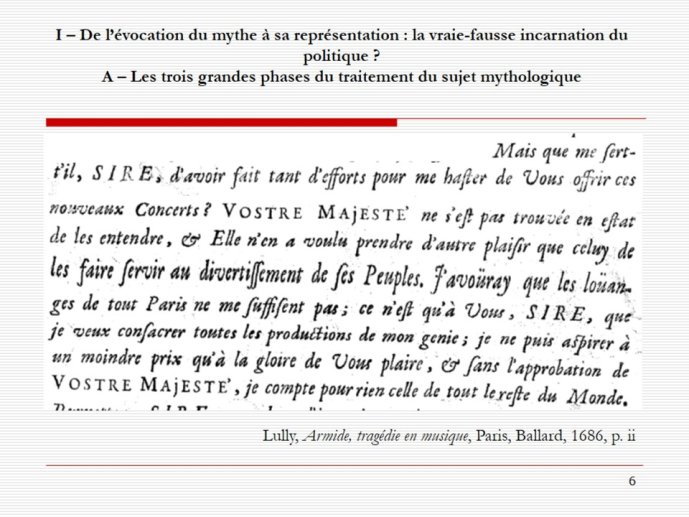 I – De l’évocation du mythe à sa représentation : la vraie-fausse incarnation du
politique ?
A – Les trois grandes phases du traitement du sujet mythologique
Mais que me ſert-
t'il, SIRE, d'avoir fait tant d'efforts pour me haſter de Vous offrir ces
nouveaux Concerts ? VOSTRE MAJESTE' ne s'eſt pas trouvée en eſtat
de les entendre, & Elle n'en a voulu prendre d'autre plaiſir que celuy de
les faire ſervir au divertiſſement de ſes Peuples. J'avoüray que les loüan-
ges de tout Paris ne me ſuffiſent pas ; ce n'eſt qu'à Vous, SIRE, que
je veux conſacrer toutes les productions de mon genie ; je ne puis aſpirer à
un moindre prix qu'à la gloire de Vous plaire, & ſans l'approbation de
VOSTRE MAJESTE', je compte pour rien celle de tout le reſte du Monde.
Lully, Armide, tragédie en musique, Paris, Ballard, 1686, p. ii
6